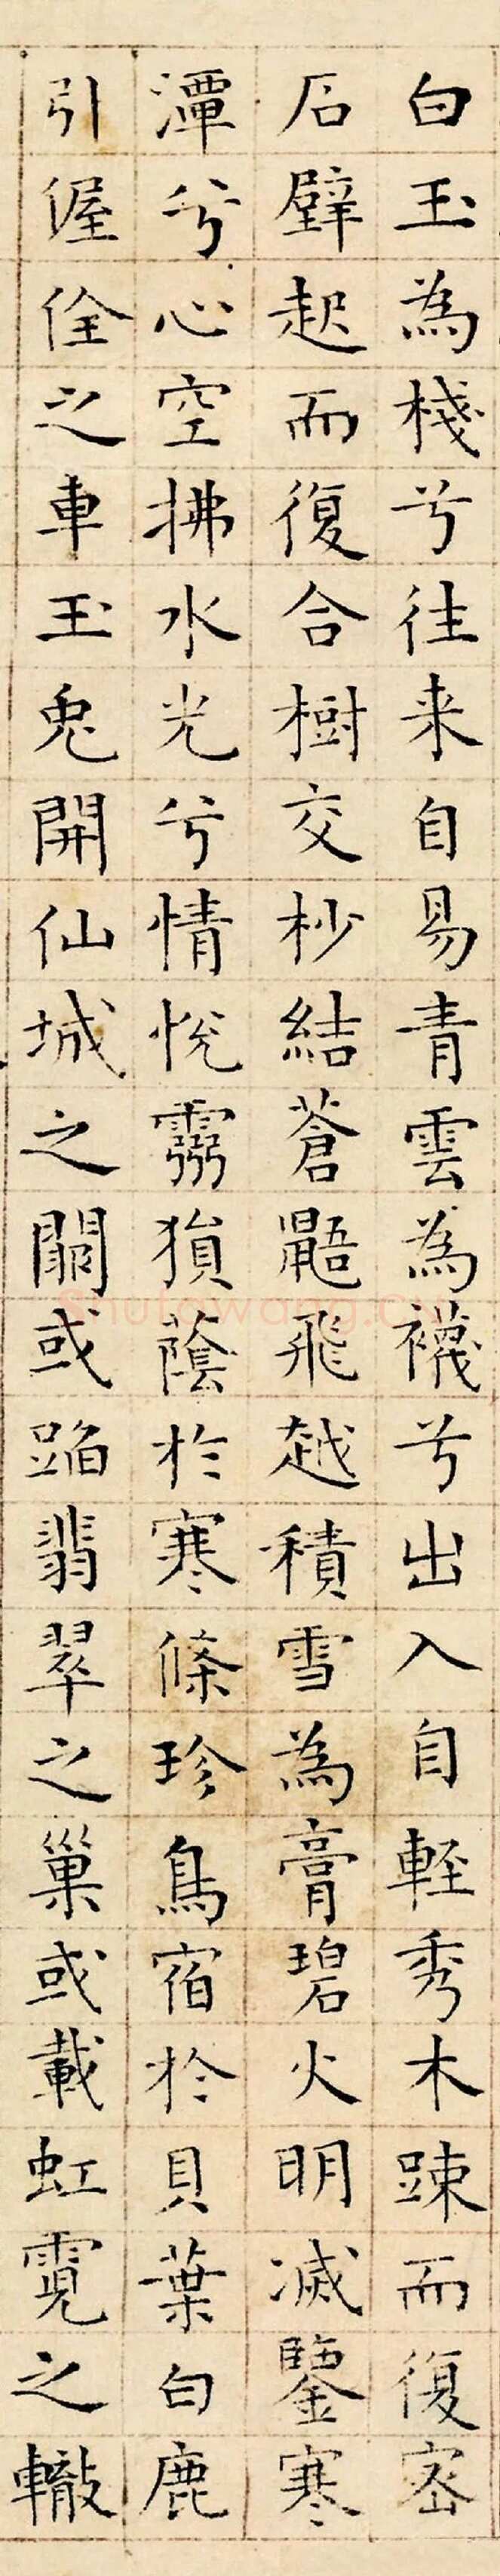 白玉為棧兮往来自易青雲為襪兮出入自軽秀木踈而復密
石壁起而復合樹交杪結蒼鼯飛越積雪為膏碧火明滅鑒寒
潭兮心空拂水光兮情悅霛猨蔭於寒條珍鳥宿於貝葉白鹿
引偓佺之車玉兔開仙城之闕或蹈翡翠之巢或載虹霓之轍